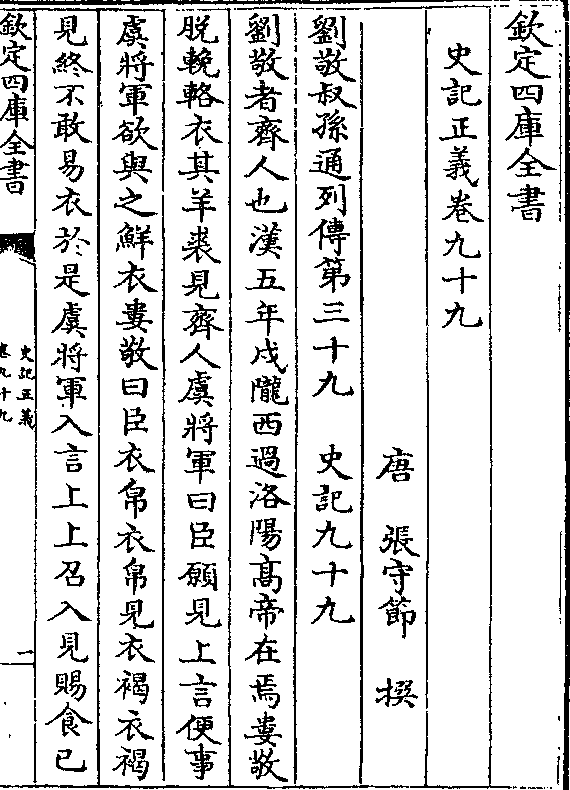 欽定四庫全書
史記正義卷九十九
唐 張守節 撰
劉敬叔孫通列傳第三十九 史記九十九
劉敬者齊人也漢五年戍隴西過洛陽髙帝在焉婁敬
脱輓輅衣其羊裘見齊人虞將軍曰臣願見上言便事
虞將軍欲與之鮮衣婁敬曰臣衣帛衣帛見衣褐衣褐
見終不敢易衣於是虞將軍入言上上召入見賜食已
欽定四庫全書
史記正義
卷九十九
一